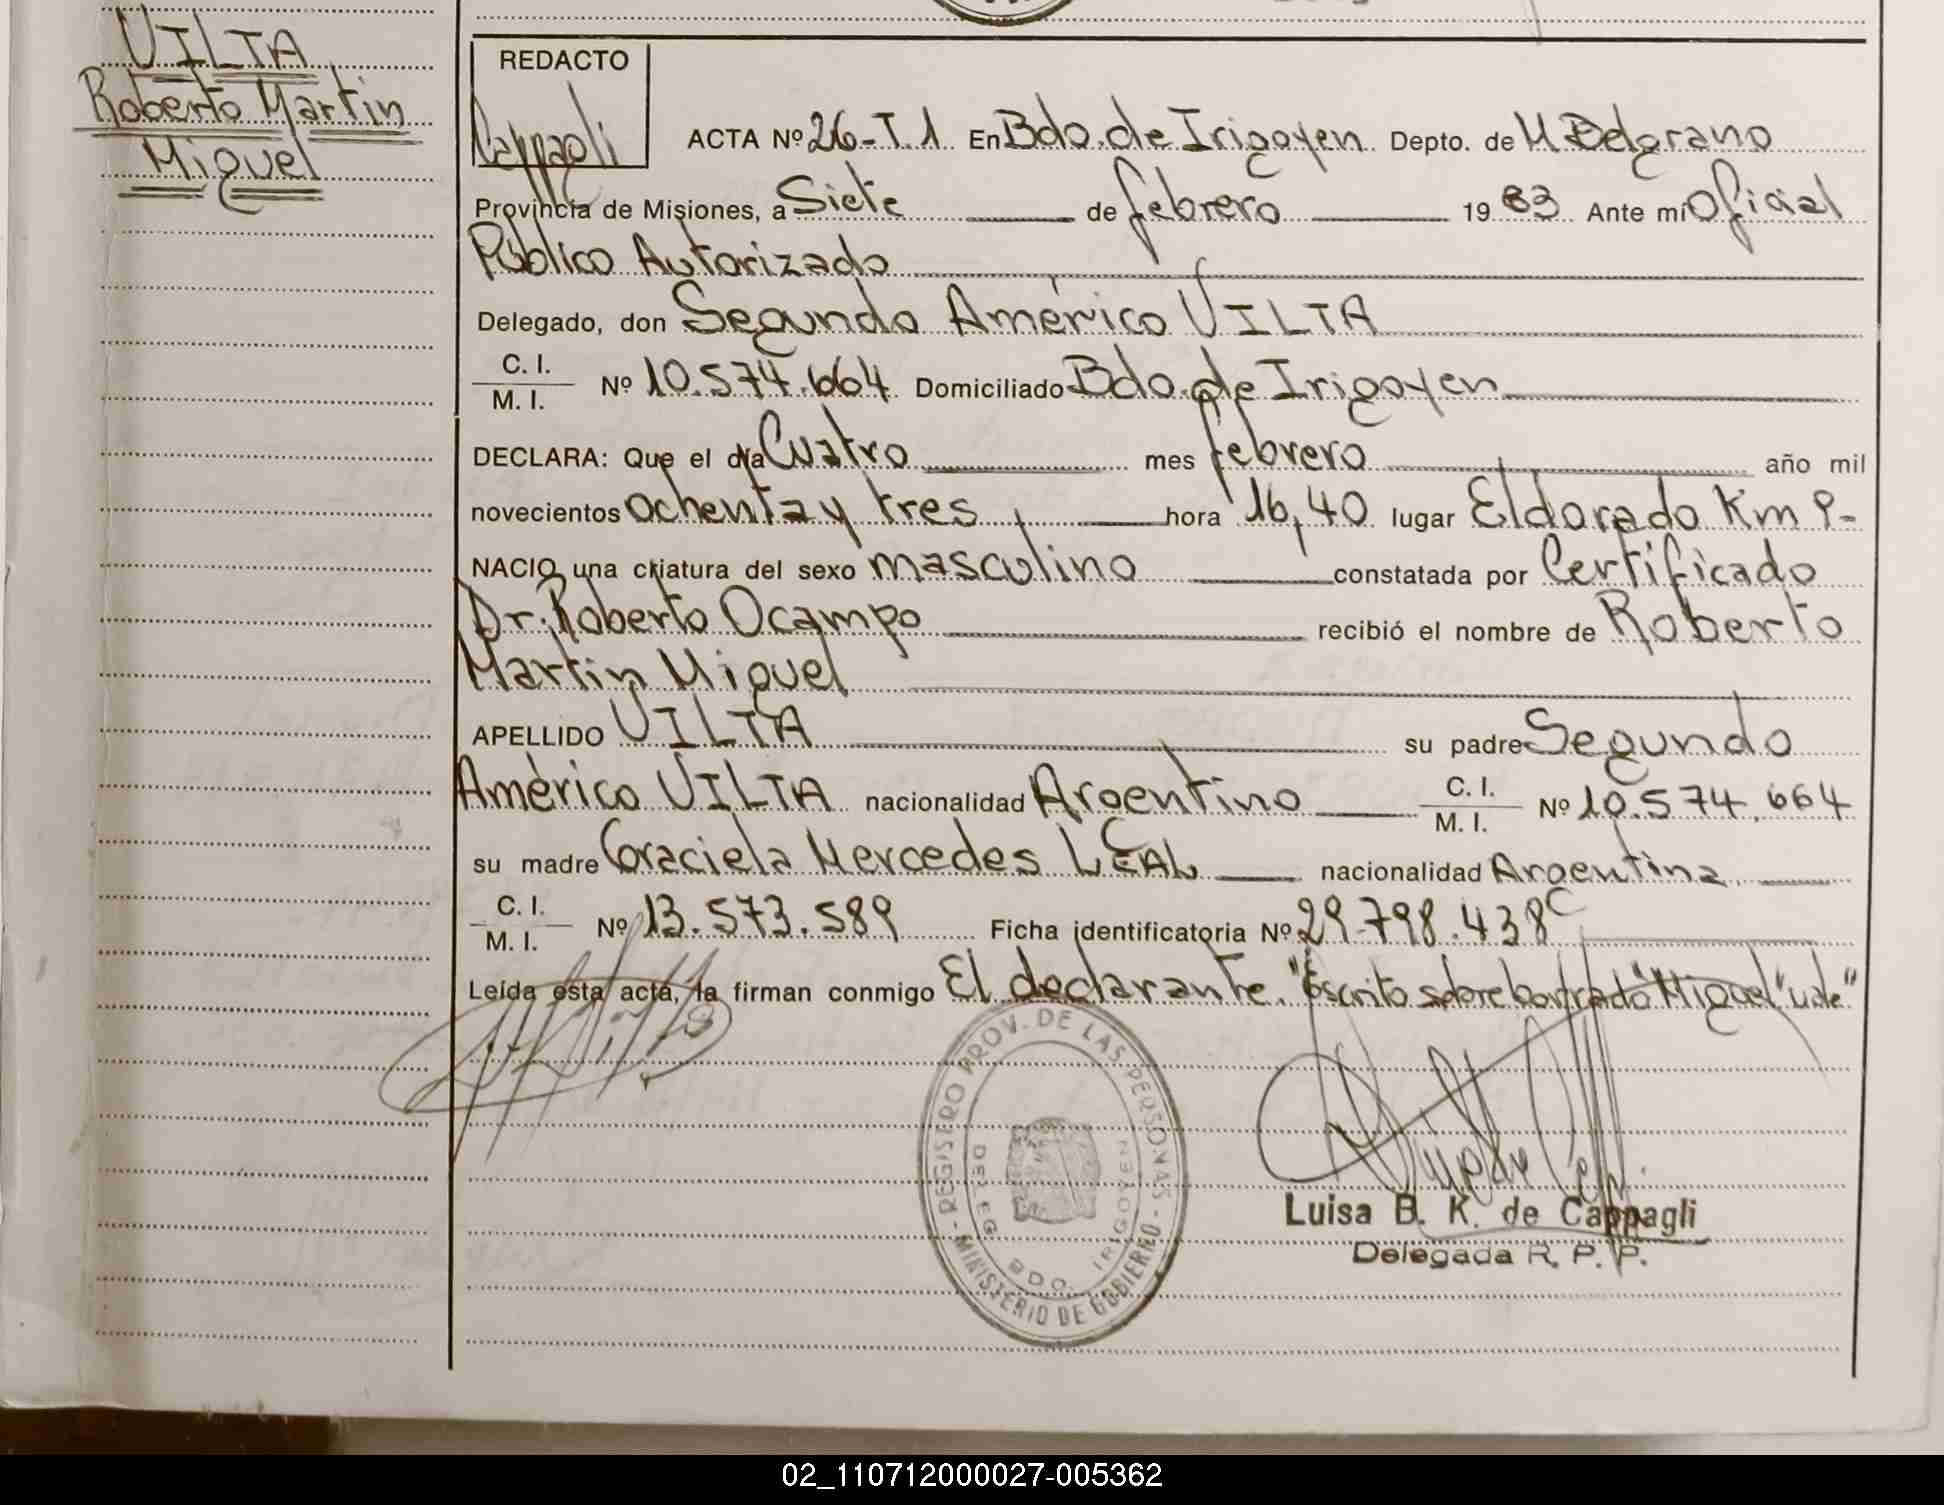 VILTA
Roberto Martin
Miguel
REDACTO
Cappagli
ACTA Nº 26-T.1 En Bdo. de Irigoyen Depto. de M Belgrano
Provincia de Misiones, a Siete de febrero 19 83 Ante mi Oficial
Público Autorizado
Delegado, don Segundo Américo VILTA
C. I.
M. I. Nº 10.574.664 Domiciliado Bdo. de Irigoyen
DECLARA: Que el día Cuatro mes febrero año mil
novecientos ochenta y tres hora 16,40 lugar Eldorado Km 9-
NACIO una criatura del sexo masculino constatada por Certificado
Dr. Roberto Ocampo recibió el nombre de Roberto
Martin Miguel
APELLIDO VILTA su padre Segundo
Américo VILTA nacionalidad Argentino C. I. M. I. Nº 10.574.664
su madre Graciela Mercedes LEAL nacionalidad Argentina
C. I.
M. I. Nº 13.573.589 Ficha identificatoria Nº 29.798.438
Leída esta acta, la firman conmigo El declarante. "Escrito sobre borrado "Miguel" vale"
REGISTRO PROV. DE LAS PERSONAS - MINISTERIO DE GOBIERNO -
DELEG BDO. IRIGOYEN
Luisa B. K. de Cappagli
Delegada R. P. P.
02_110712000027-005362